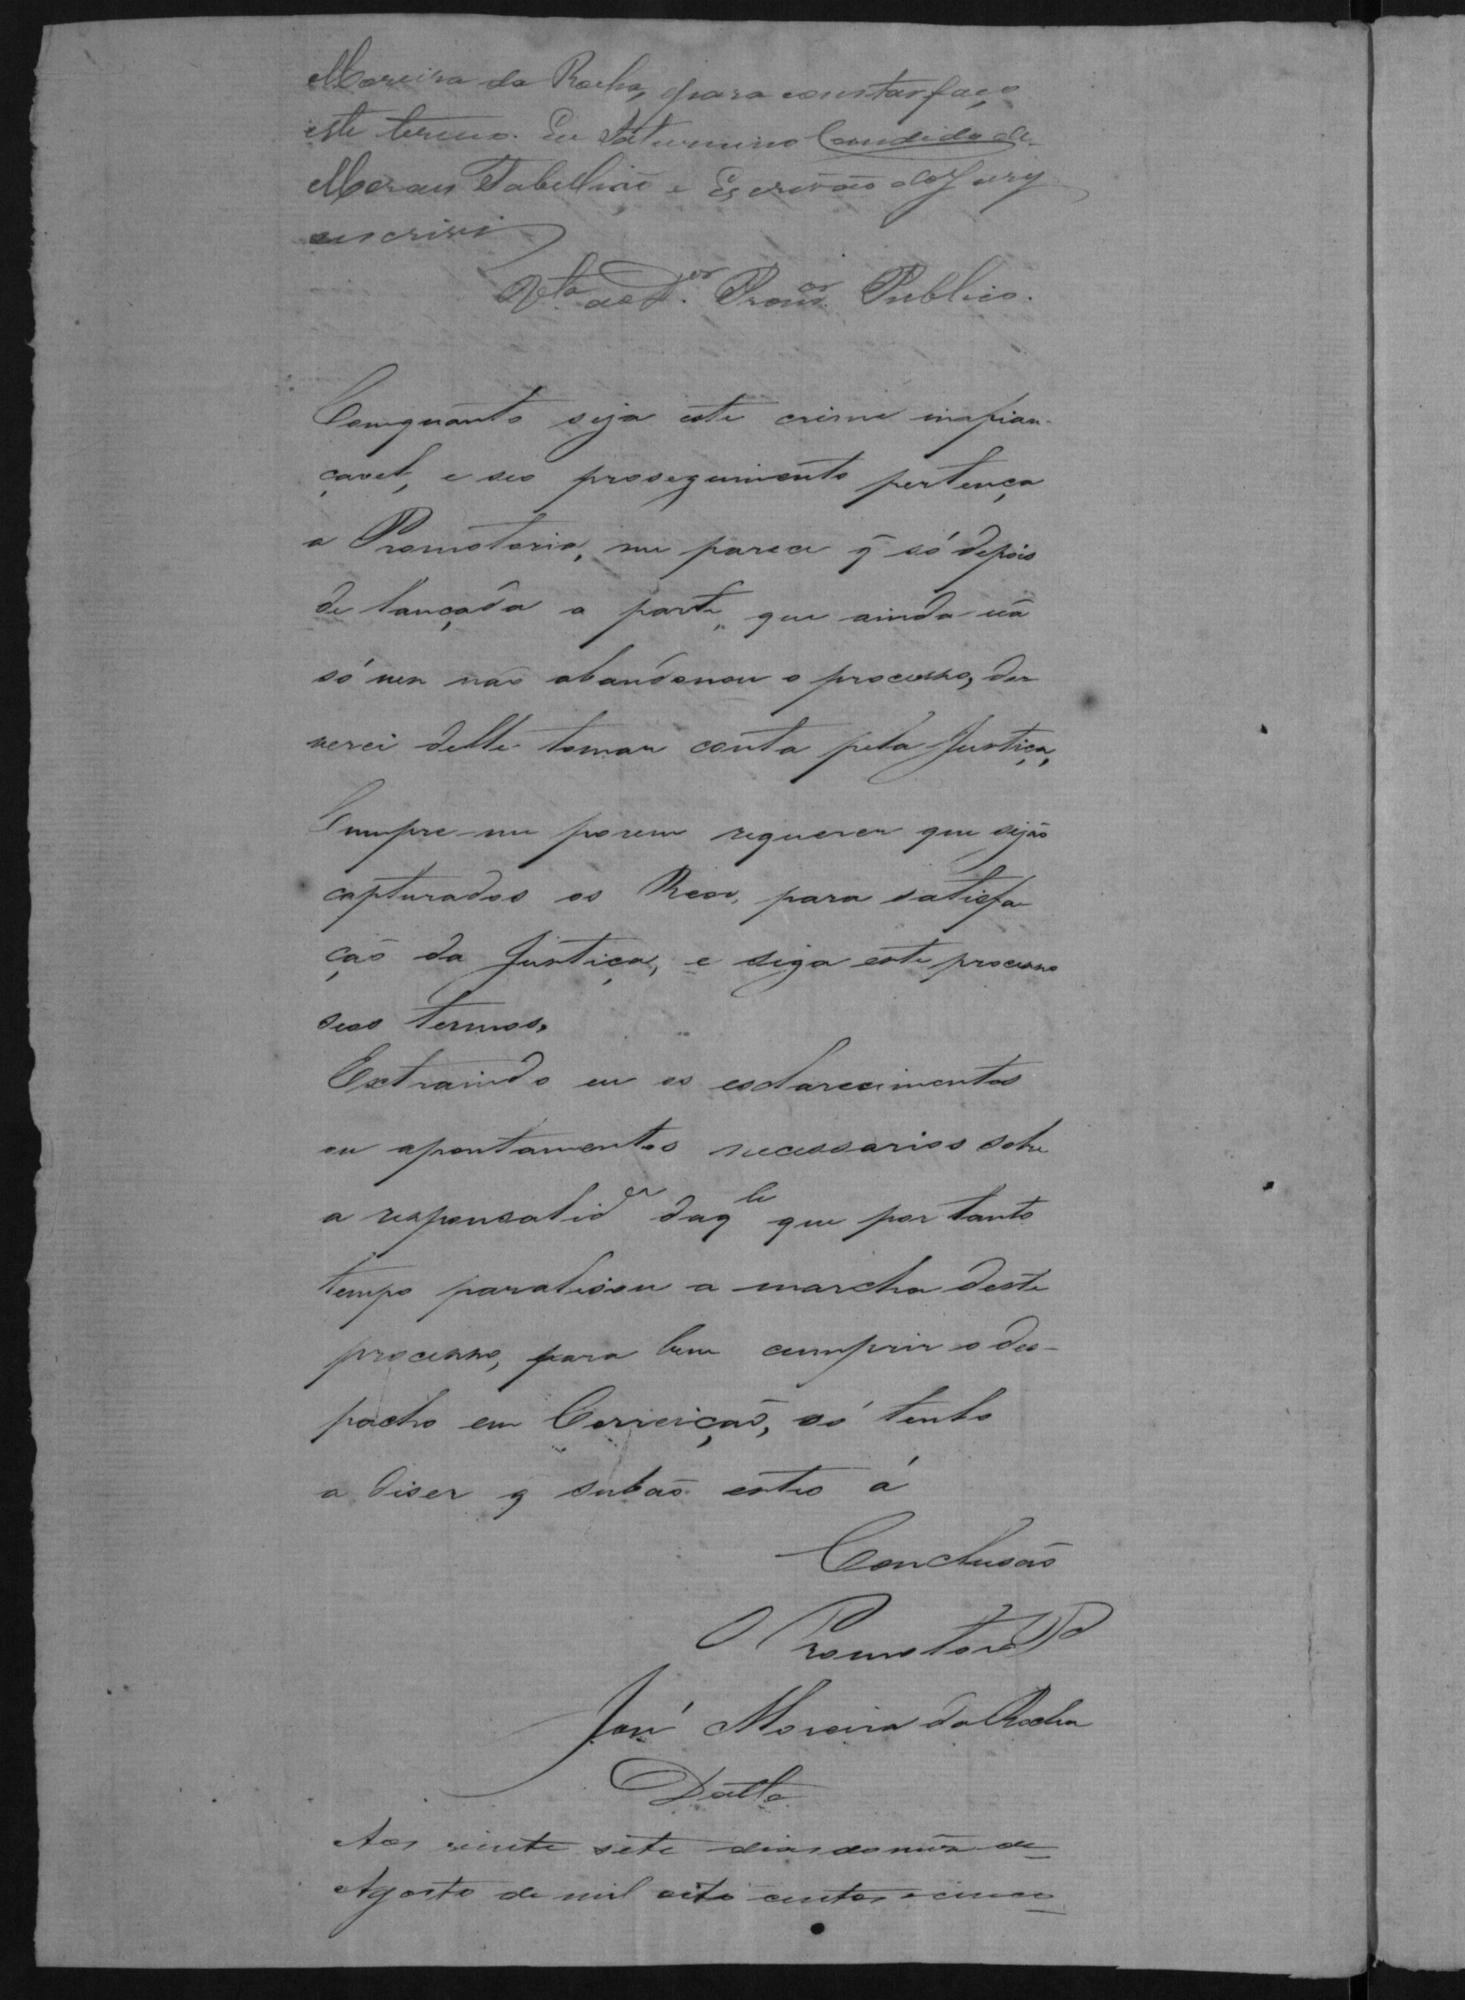 Moreira da Rocha, para constar faço
este termo. Eu Saturnino Candido de
Moraes Tabellião e Escrivão do Jury
escrivi
Vta ao Dor Promor Publico.
Comquanto seja este crime inafian-
çavel, e seo proseguimento pertença
a Promotoria, me parece q̃ só depois
de lançada a parte, que ainda
só não abandonou o processo, de-
verei delle tomar conta pela Justiça,
Cumpre-me porem requerer que sejão
capturados os Reos, para satisfa
ção da Justiça, e siga este processo
seos termos.
Extraindo eu os esclarecimentos
ou apontamentos necessarios sobre
a responsalide daqle que por tanto
tempo paralisou a marcha deste
processo, para bem cumprir o des-
pacho em Correição, só tenho
a diser q subão estes á
Conclusão
O Promotor P
José Moreira da Rocha
Datta
Aos vinte sete dias do mez de
Agosto de mil oito centos e cinco